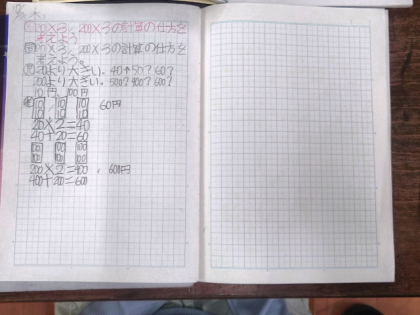 20×3、200×3の計算の仕方を
考えよう
20×3、200×3の計算の仕方を
考えよう。
20より大きい。40↑50?60?
200より大きい。500?400?600?
10円、100円
10 10 10 60円
10 10 10
20×2=40
40+20=60
100 100 100
100 100 100
200×2=400 、600円
400+200=600